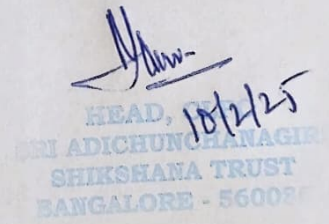 HEAD,
10/2/25
SRI ADICHUNCHANAGIRI
SHIKSHANA TRUST
BANGALORE - 56008